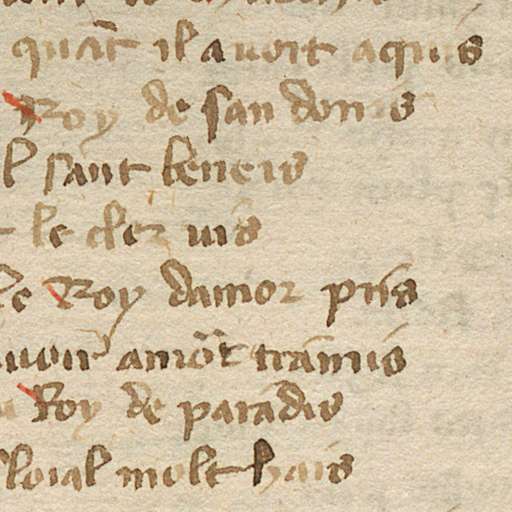 quāt il avoit aquis
Roy de san donis
l saut beneis
le cler vis
Roy damor pris
amōt tramis
Roy de paradis
loial molt hais